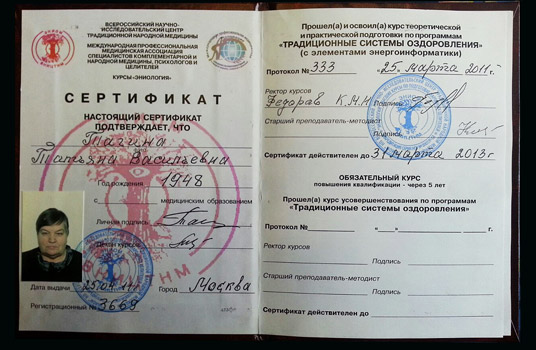 ВСЕРОССИЙСКИЙ НАУЧНО-
ИССЛЕДОВАТЕЛЬСКИЙ ЦЕНТР
ТРАДИЦИОННОЙ НАРОДНОЙ МЕДИЦИНЫ
МЕЖДУНАРОДНАЯ ПРОФЕССИОНАЛЬНАЯ
МЕДИЦИНСКАЯ АССОЦИАЦИЯ
СПЕЦИАЛИСТОВ КОМПЛЕМЕНТАРНОЙ И
НАРОДНОЙ МЕДИЦИНЫ, ПСИХОЛОГОВ И
ЦЕЛИТЕЛЕЙ
КУРСЫ «ЭНИОЛОГИЯ»
СЕРТИФИКАТ
НАСТОЯЩИЙ СЕРТИФИКАТ
ПОДТВЕРЖДАЕТ, ЧТО
Татьяна Васильевна
Год рождения 1948
с медицинским образованием
Личная подпись
Декан курсов
Дата выдачи 25.04.11 Город Москва
Регистрационный № 3669
Прошел(а) и освоил(а) курс теоретической
и практической подготовки по программам
«ТРАДИЦИОННЫЕ СИСТЕМЫ ОЗДОРОВЛЕНИЯ»
(с элементами энергоинформатики)
Протокол № 333 25. марта 2011 г.
Ректор курсов
Федоров К.М.Н Подпись
Старший преподаватель-методист
Подпись
Сертификат действителен до 31 марта 2013 г.
ОБЯЗАТЕЛЬНЫЙ КУРС
повышения квалификации - через 5 лет
Прошел(а) курс усовершенствования по программам
«Традиционные системы оздоровления»
Протокол № « » г.
Ректор курсов
Подпись
Старший преподаватель-методист
Подпись
Сертификат действителен до